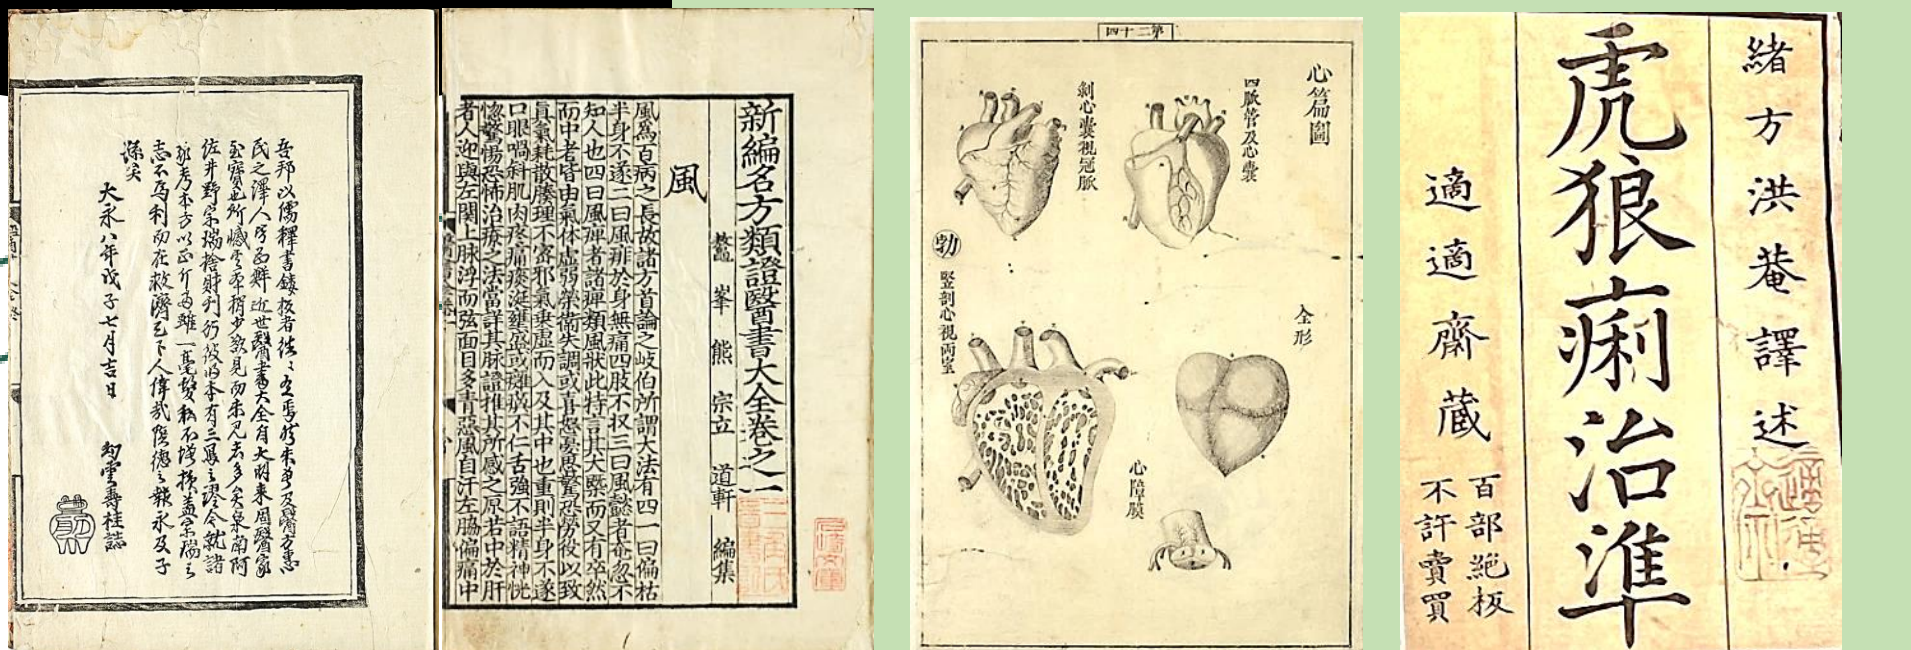 吾邦以儒釋書鏤板者往〻有焉然未曾及醫方惠
民之澤人皆爲鮮近世醫書大全自大明來固醫家
至寶也所憾其本稍少欲見而未見者多矣泉南阿
佐井野宗瑞捨財刊行彼明本有三寫之謬今就諸
家考本方以正斤兩雖一毫髮私不增損蓋宗瑞之
志不爲利而在救濟天下人偉哉陰德之報永及子
孫矣
大永八年戊子七月吉日
幻雲壽桂誌
新編名方類證醫書大全卷之一
鼇峯熊宗立道軒編集
風
風爲百病之長故諸方首論之岐伯所謂大法有四一曰偏枯
半身不遂二曰風痱於身無痛四肢不收三曰風懿者奄忽不
知人也四曰風痺者諸痺類風狀此特言其大槩而又有卒然
而中者皆由氣体虛弱榮衛失調或喜怒憂思驚恐勞役以致
眞氣耗散腠理不密邪氣乘虛而入及其中也重則半身不遂
口眼喎斜肌肉疼痛痰涎壅盛或癱瘓不仁舌強不語精神恍
惚驚惕恐怖治療之法當詳其脉證推其所感之原若中於肝
者人迎與左関上脉浮而弦面目多青惡風自汗左脇偏痛中
第二十四
心篇圖
四脈管及心囊
剝心囊視冠脈
勃
全形
竪剖心視兩室
心障膜
緒方洪菴譯述
虎狼痢治準
適適齋藏
百部絶板
不許賣買